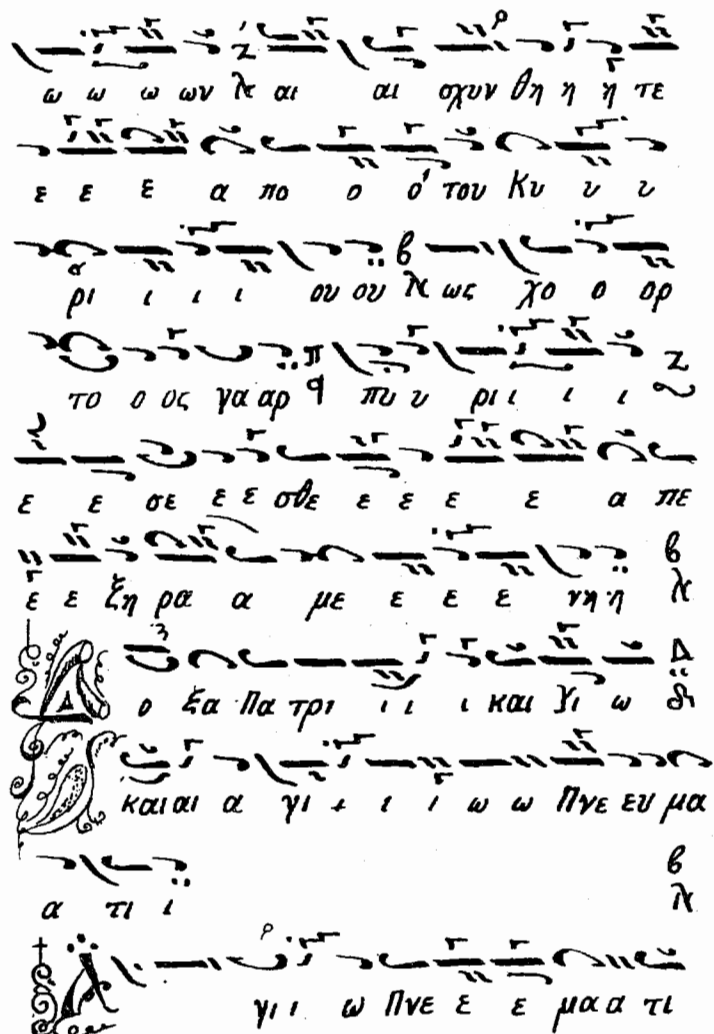 ω ω ω ων αι αι σχυν θη η η τε
ε ε ε α πο ο ο' του Κυ υ υ
ρι ι ι ι ου ου ως χο ο ορ
το ο ος γα αρ πυ υ ρι ι ι ι
ε ε σε ε ε σθε ε ε ε ε α πε
ε ε ξη ρα α με ε ε ε νη η
Δ ο ξα Πα τρι ι ι ι και Υι ω
και αι α γι ι ι ι ω ω Πνε ευ μα
α τι ι
Α γι ι ω Πνε ε ε μα α τι